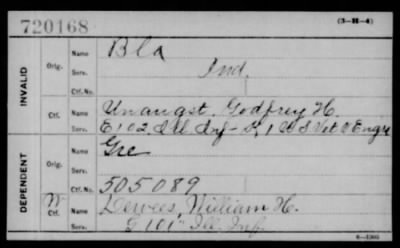 720168
(3-H-4)
INVALID
Orig.
Name
Bla
Serv.
Ind.
Ctf. No.
Ctf.
Name
Unangst, Godfrey H.
Serv.
E 102, Ill Inf - D, 1 U S Vet V Engr
DEPENDENT
Orig.
Name
Gre
Serv.
Ctf. No.
505089
W
Ctf.
Name
Dewees, William H.
Serv.
G 101" Ill. Inf.